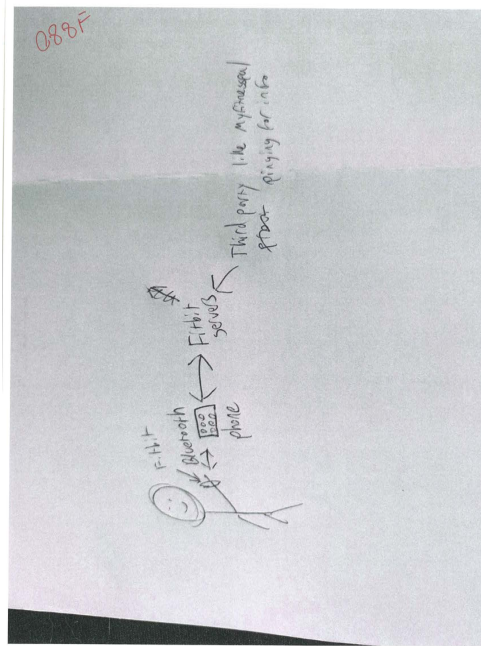 088F
Fitbit
Bluetooth
phone
Fitbit
servers
Third party like myfitnesspal
pinging for info